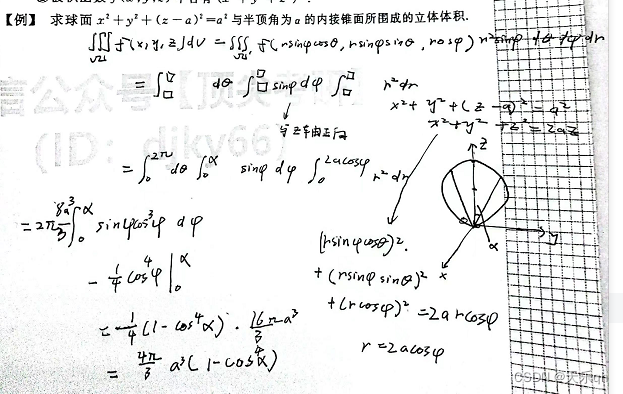 【例】 求球面 x²+y²+(z-a)²=a² 与半顶角为 α 的内接锥面所围成的立体体积.
∭ f(x,y,z)dv = ∭ f(rsinφcosθ, rsinφsinθ, rcosφ) r²sinφ dθ dφ dr
= ∫□□ dθ ∫□□ sinφ dφ ∫□□ r²dr
x²+y²+(z-a)²=a²
x²+y²+z²=2az
与z车由正向
= ∫₀^2π dθ ∫₀^α sinφ dφ ∫₀^2acosφ r²dr
z
y
x
α
= 2π 8a³/3 ∫₀^α sinφcos³φ dφ
- 1/4 cos⁴φ |₀^α
= -1/4 (1-cos⁴α) · 16π/3 a³
= 4π/3 a³(1-cos⁴α)
(rsinφcosθ)²
+ (rsinφsinθ)²
+ (rcosφ)² = 2arcosφ
r = 2acosφ
信公众号【顶
(ID: djky66